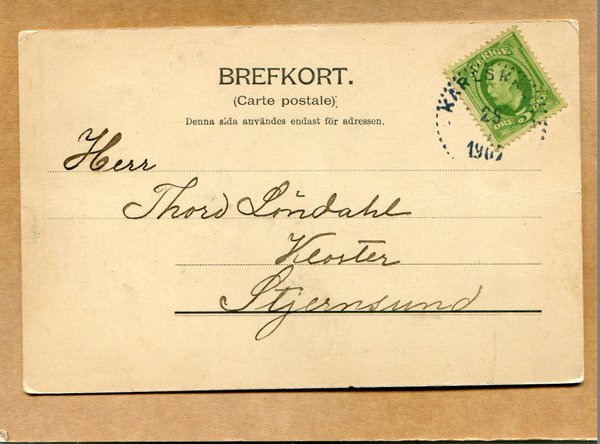 BREFKORT.
(Carte postale)
Denna sida användes endast för adressen.
SVERIGE
Herr
Thord Löndahl
Kloster
Stjernsund